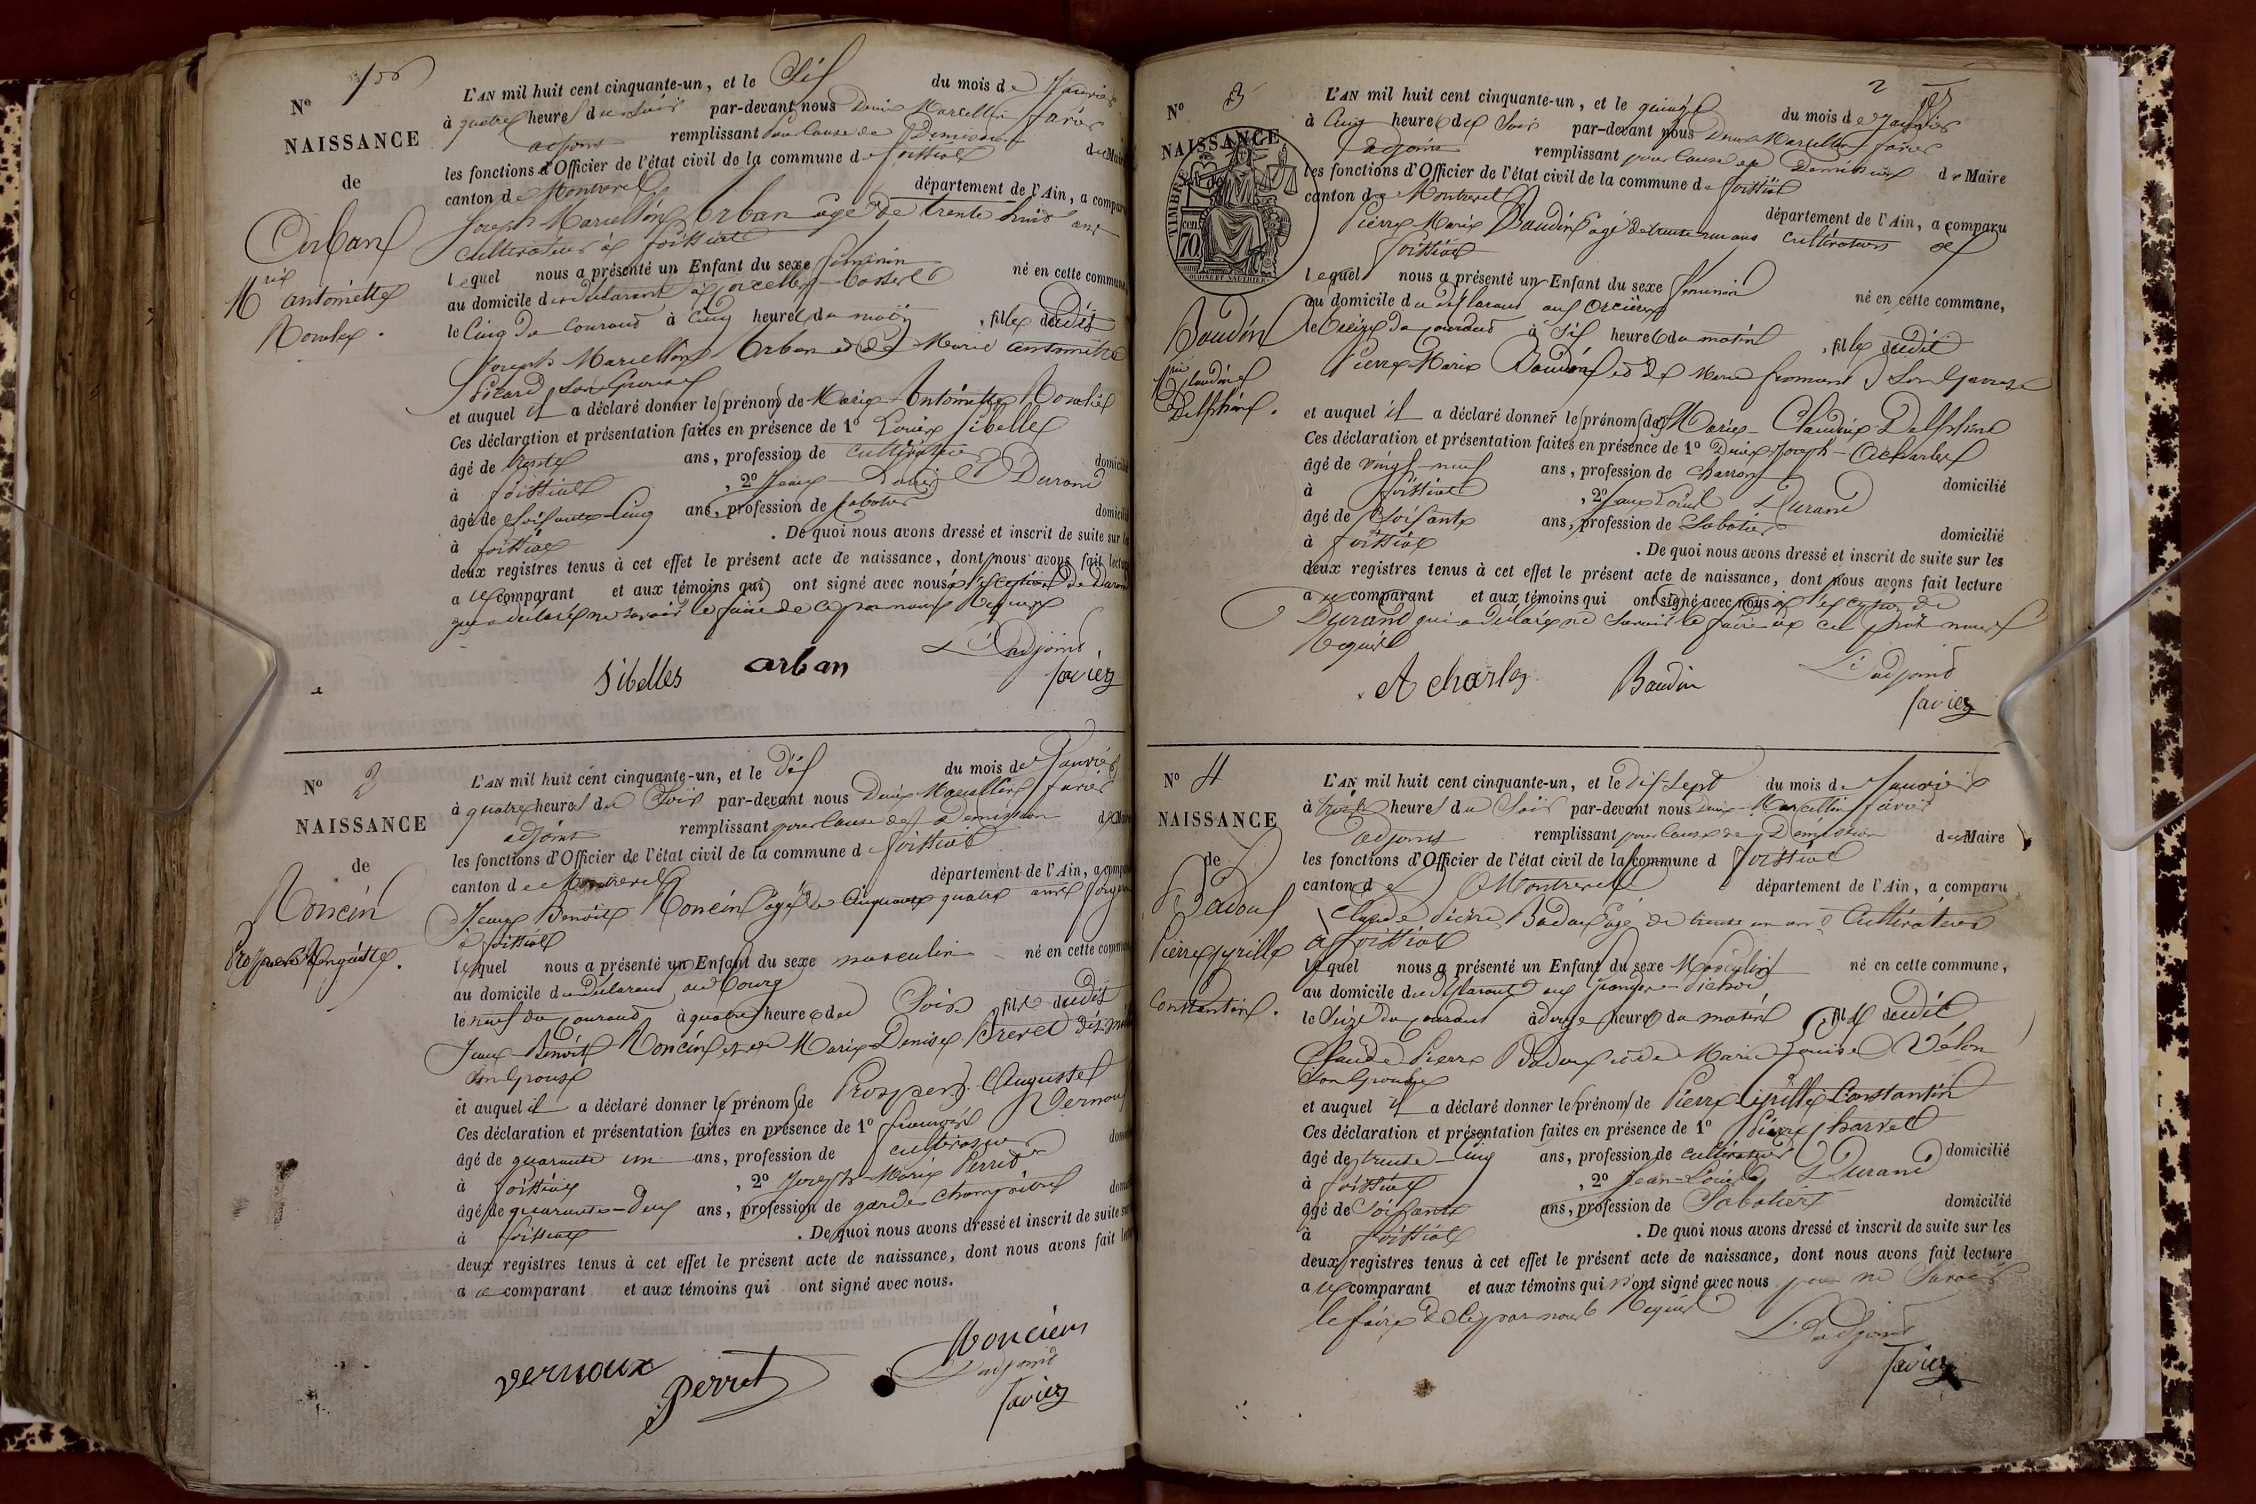 N° 1er
NAISSANCE
de
Orban
Mrie antoinette
Rosalie.
L'AN mil huit cent cinquante-un, et le dix du mois de Janvier
à quatre heures du soir par-devant nous Denis Marcellin favier
adjoint remplissant pour Cause de Démission de Maire
les fonctions d'Officier de l'état civil de la commune de foissiat
canton de Montrevel département de l'Ain, a comparu
Joseph Marcellin Orban âgé de trente huit ans
cultivateur à foissiat
lequel nous a présenté un Enfant du sexe féminin né en cette commune,
au domicile du déclarant à
le Cinq du Courant à Cinq heures du matin, fille dudit
Joseph Marcellin Orban et de Marie antoinette
Picard son épouse
et auquel il a déclaré donner les prénoms de Marie Antoinette Rosalie
Ces déclaration et présentation faites en présence de 1° Louis Sibelles
âgé de trente ans, profession de cultivateur domicilié
à foissiat, 2° Jean-Louis Durand
âgé de Soixante-Cinq ans, profession de Sabotier domicilié
à foissiat. De quoi nous avons dressé et inscrit de suite sur les
deux registres tenus à cet effet le présent acte de naissance, dont nous avons fait lecture
a ce comparant et aux témoins qui ont signé avec nous à l'exception de Durand
qui a déclaré ne savoir le faire de ce par nous Requis
L'adjoint
Sibelles orban favier
N° 2
NAISSANCE
de
Roncin
Prosper Auguste.
L'AN mil huit cent cinquante-un, et le dix du mois de Janvier
à quatre heures du Soir par-devant nous Denis Marcellin favier
adjoint remplissant pour Cause de Démission de Maire
les fonctions d'Officier de l'état civil de la commune d foissiat
canton de Montrevel département de l'Ain, a comparu
Jean Benoit Roncin âgé de Cinquante quatre ans
à foissiat
lequel nous a présenté un Enfant du sexe masculin né en cette commune
au domicile du déclarant au bourg
le neuf du courant à quatre heures du Soir fils dudit
Jean-Benoit Roncin et de Marie Denise Brevet
son épouse
et auquel il a déclaré donner les prénoms de Prosper Auguste
Ces déclaration et présentation faites en présence de 1° françois Vernoux
âgé de quarante un ans, profession de cultivateur
à foissiat, 2° Joseph-Marie Perret
âgé de quarante-deux ans, profession de garde champêtre
à foissiat. De quoi nous avons dressé et inscrit de suite sur
deux registres tenus à cet effet le présent acte de naissance, dont nous avons fait
a ce comparant et aux témoins qui ont signé avec nous.
vernoux Perret
L'adjoint
favier
2
N° 3
NAISSANCE
de
TIMBRE
70
Baudin
Mrie Claudine
Delphine.
L'AN mil huit cent cinquante-un, et le quinze du mois de Janvier
à Cinq heures du Soir par-devant nous Denis Marcellin favier
adjoint remplissant pour Cause de Démission de Maire
les fonctions d'Officier de l'état civil de la commune de foissiat
canton de Montrevel département de l'Ain, a comparu
Pierre Marie Baudin âgé de trente un ans cultivateur à
foissiat
lequel nous a présenté un Enfant du sexe féminin né en cette commune,
au domicile du déclarant aux Orcières
le treize du courant à Six heures du matin, fille dudit
Pierre-Marie Baudin et de Marie froment son épouse
et auquel il a déclaré donner les prénoms de Marie-Claudine Delphine
Ces déclaration et présentation faites en présence de 1° Denis Joseph-Acharles
âgé de vingt-neuf ans, profession de charron domicilié
à foissiat, 2° Jean Louis Durand
âgé de Soixante ans, profession de Sabotier domicilié
à foissiat. De quoi nous avons dressé et inscrit de suite sur les
deux registres tenus à cet effet le présent acte de naissance, dont nous avons fait lecture
a ce comparant et aux témoins qui ont signé avec nous à l'exception de
Durand qui a déclaré ne Savoir le faire de ce par nous
Requis
L'adjoint
Acharles Baudin favier
N° 4
NAISSANCE
de
Badoux
Pierre Cyrille
Constantin.
L'AN mil huit cent cinquante-un, et le dix sept du mois de Janvier
à trois heures du Soir par-devant nous Denis-Marcellin favier
adjoint remplissant pour Cause de Démission de Maire
les fonctions d'Officier de l'état civil de la commune d foissiat
canton de Montrevel département de l'Ain, a comparu
Claude Pierre Badoux âgé de trente un ans Cultivateur
à foissiat
lequel nous a présenté un Enfant du sexe Masculin né en cette commune,
au domicile du déclarant aux
le Seize du courant à douze heures du matin, fils dudit
Claude Pierre Badoux et de Marie Louise Vélon
son épouse
et auquel il a déclaré donner les prénoms de Pierre Cyrille Constantin
Ces déclaration et présentation faites en présence de 1° Pierre
âgé de trente-cinq ans, profession de cultivateur domicilié
à foissiat, 2° Jean-Louis Durand
âgé de Soixante ans, profession de Sabotier domicilié
à foissiat. De quoi nous avons dressé et inscrit de suite sur les
deux registres tenus à cet effet le présent acte de naissance, dont nous avons fait lecture
a ce comparant et aux témoins qui n'ont signé avec nous pour ne Savoir
le faire de ce par nous Requis
L'adjoint
favier